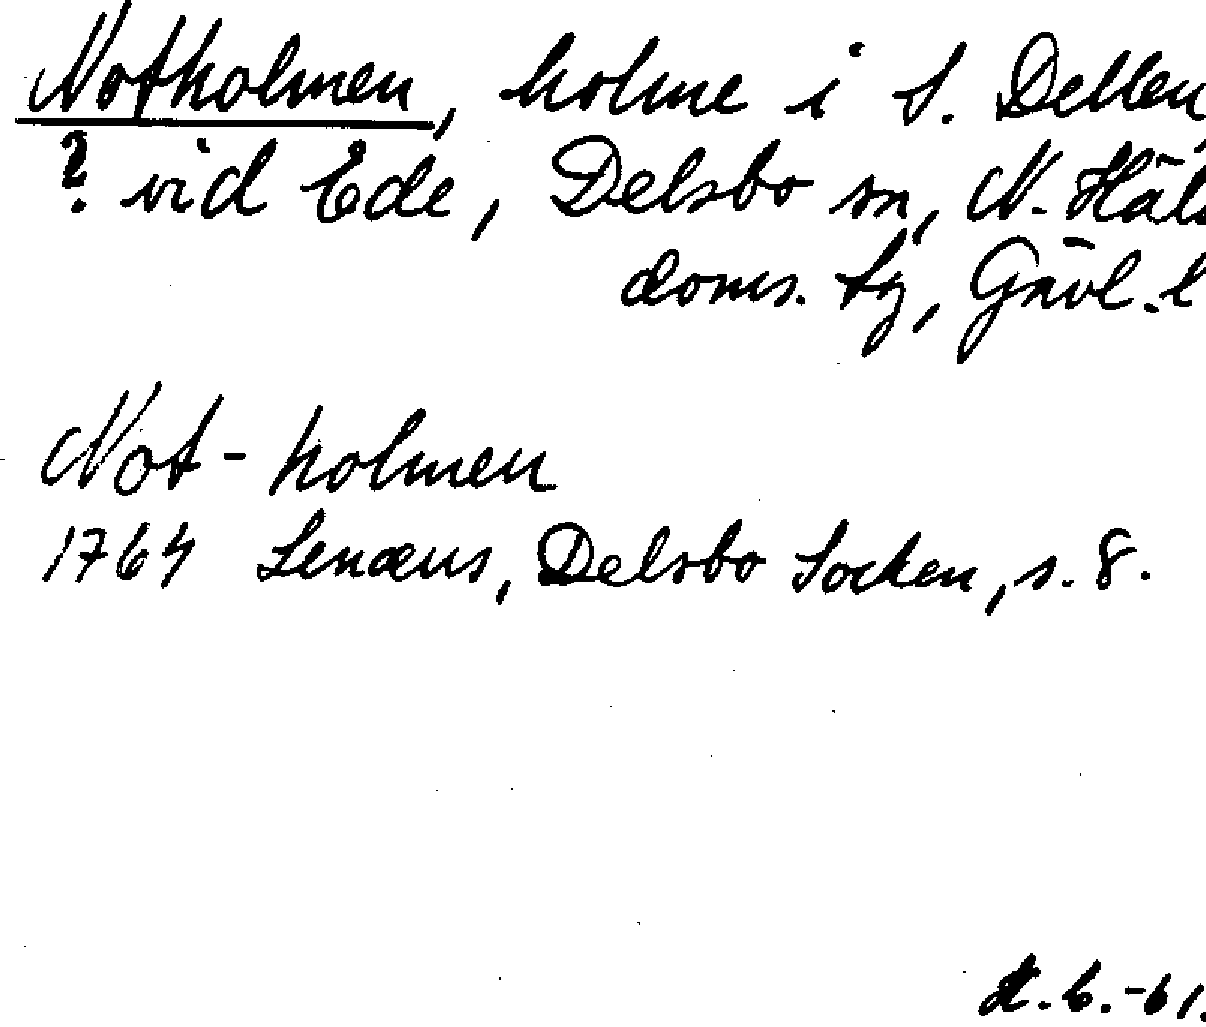 Notholmen, holme i S. Dellen
? vid Ede, Delsbo sn, N. Häls
doms. tg, Gävl. l
Not-holmen
1764 Lenæus, Delsbo Socken, s. 8.